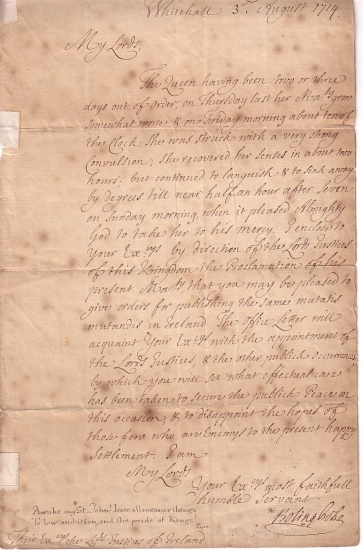 Whitehall 3d August 1714.
My Lords,
The Queen having been two or three
days out of order, on Thursday last her Maty grew
somewhat worse & on Friday morning about ten of
the Clock She was struck with a very strong
Convulsion; She recovered her Senses in about two
hours. but continued to languish & to sink away
by degrees till near half an hour after Seven
on Sunday morning, when it pleased Almighty
God to take her to his mercy. I enclose to
Your Exys by direction of the Lords Justices
of this Kingdom the Proclamation of his
present Maty that you may be pleased to
give orders for publishing the same mutatis
mutandis in Ireland. The Office Letter will
acquaint Your Exys with the appointment of
the Lords Justices, & the other publick Occurrences,
by which you will see what effectual care
has been taken to secure the publick Peace, on
this occasion, & to disappoint the hopes of
those few who are Enemys to the present happy
Settlement. I am
My Lords
Your Exys most faithfull
humble Servant
Bolingbroke
Awake my St. John! leave all meaner things
To low ambition, and the pride of Kings.
Pope
Their Exys the Lds Justices of Ireland